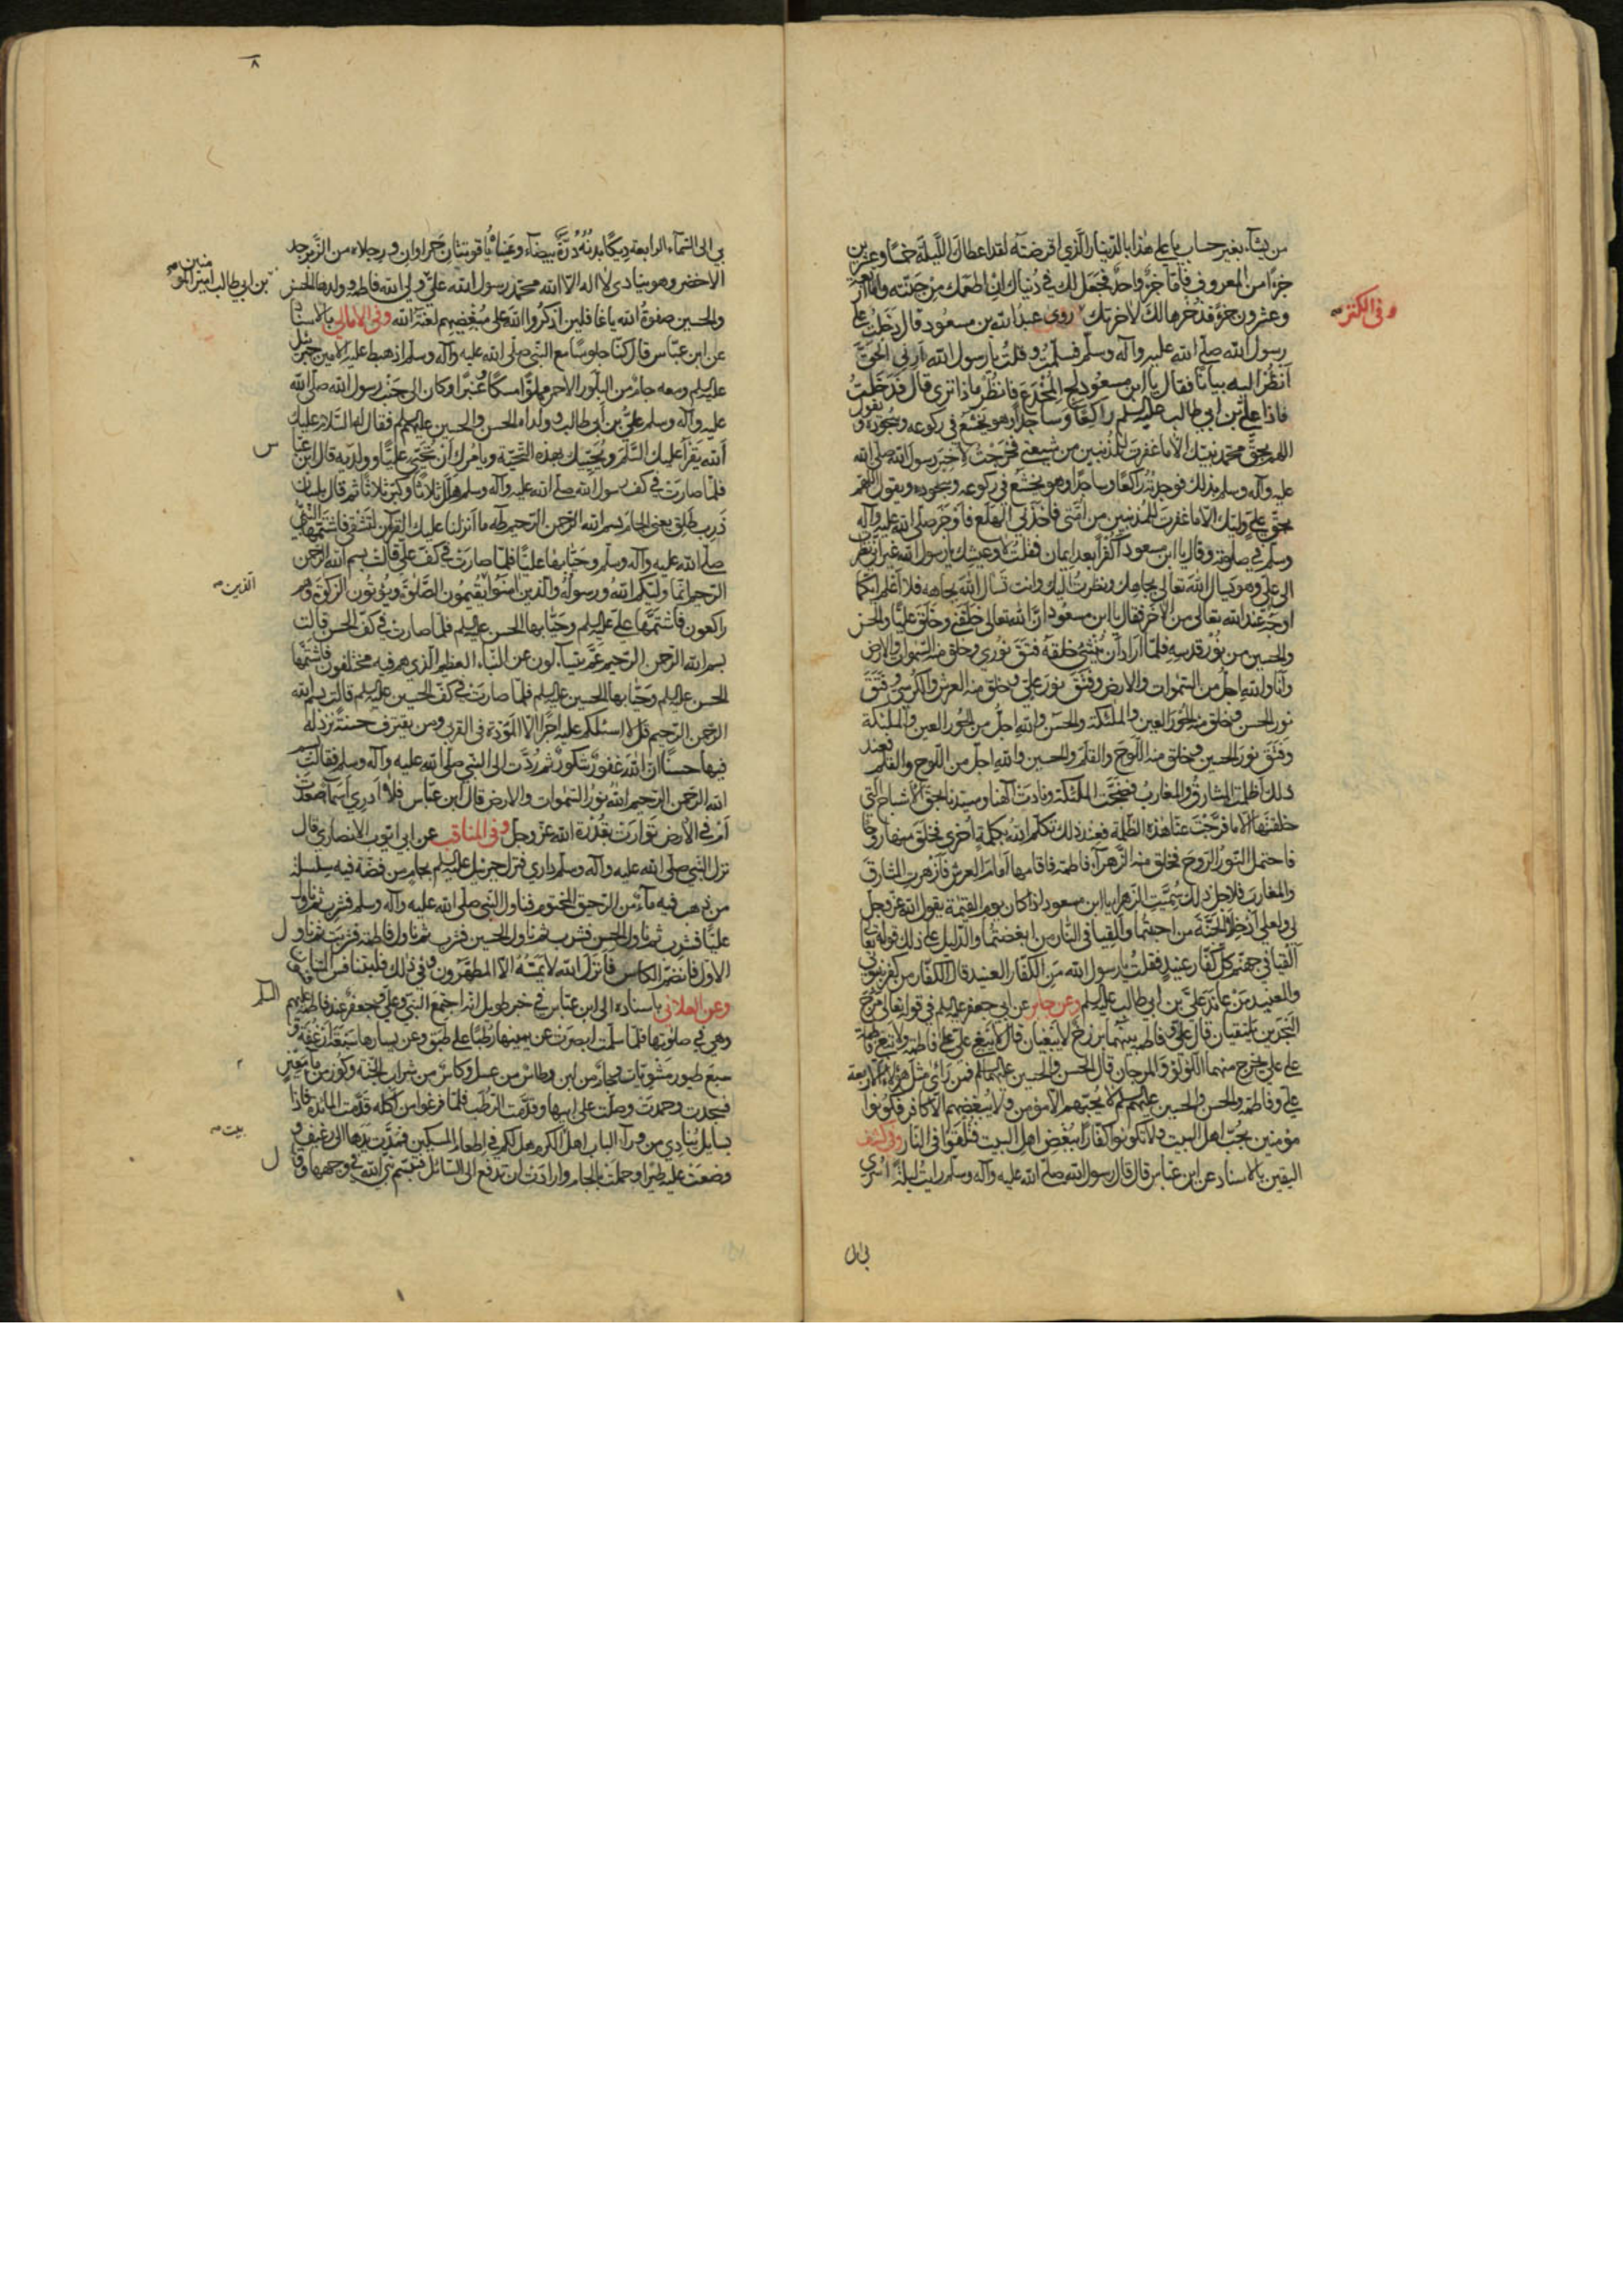 من يشآء بغير حساب يا علي هذا بالدينار الذي اقرضته لقد اعطاك الليلة خمسا وعشرين
جزءا من المعروف فاما جزء واحد فجعل لك في دنياك ان اطعمك من جنته واما اربعة
وعشرون جزء قد ذخرها لك لاخرتك روى عبد الله بن مسعود قال دخلت على
وفى الكنز صح
رسول الله صلى الله عليه وآله وسلم فسلمت وقلت يا رسول الله أرني الحق
انظر اليه بيانا فقال يا ابن مسعود لج المخدع فانظر ماذا ترى قال فدخلت
فاذا علي بن ابي طالب عليه السلم راكعا وساجدا وهو يخشع في ركوعه وسجوده ويقول
اللهم بحق محمد نبيك الا ما غفرت للمذنبين من شيعتي فخرجت لاخبر رسول الله صلى الله
عليه وآله وسلم بذلك فوجدته راكعا وساجدا وهو يخشع في ركوعه وسجوده ويقول اللهم
بحق علي وليك الا ما غفرت للمذنبين من امتي فاخذني الهلع فاوجز صلى الله عليه وآله
وسلم في صلوته وقال يا ابن مسعود اكفرا بعد ايمان فقلت لا وعيشك يا رسول الله غير اني نظرت
الى علي وهو يسال الله تعالى بجاهك ونظرت اليك وانت تسال الله بجاهه فلا اعلم ايكما
اوجه عند الله تعالى من الاخر فقال يا ابن مسعود ان الله تعالى خلقني وخلق عليا والحسن
والحسين من نور قدسه فلما اراد ان ينشئ خلقه فتق نوري وخلق منه السموات والارض
وانا والله اجل من السموات والارض وفتق نور علي وخلق منه العرش والكرسي وفتق
نور الحسن وخلق منه الحور العين والملئكة والحسن والله اجل من الحور العين والملئكة
وفتق نور الحسين وخلق منه اللوح والقلم والحسين والله اجل من اللوح والقلم فعند
ذلك اظلمت المشارق والمغارب فضجت الملئكة ونادت الهنا وسيدنا بحق الاشباح التي
خلقتها الا ما فرجت عنا هذه الظلمة فعند ذلك تكلم الله بكلمة اخرى فخلق منها روحا
فاحتمل النور الروح فخلق منه الزهرآء فاطمة فاقامها امام العرش فازهرت المشارق
والمغارب فلاجل ذلك سميت الزهرا يا ابن مسعود اذا كان يوم القيمة يقول الله عز وجل
لي ولعلي ادخلا الجنة من احببتما والقيا فى النار من ابغضتما والدليل على ذلك قوله تعالى
القيا في جهنم كل كفار عنيد فقلت يا رسول الله من الكفار العنيد قال الكفار من كفر بنبوتي
والعنيد من عاند علي بن ابي طالب عليه السلم وعن جابر عن ابي جعفر عليه السلم في قوله تعالى مرج
البحرين يلتقيان قال علي وفاطمة بينهما برزخ لا يبغيان قال لا يبغي علي على فاطمة ولا تبغي فاطمة
على علي يخرج منهما اللؤلؤ والمرجان قال الحسن والحسين عليهما السلم فمن رأى مثل هؤلاء الاربعة
علي وفاطمة والحسن والحسين عليهم السلم لا يحبهم الا مؤمن ولا يبغضهم الا كافر فكونوا
مؤمنين بحب اهل البيت ولا تكونوا كفارا ببغض اهل البيت فتلقوا فى النار وفي كشف
اليقين بالاسناد عن ابن عباس قال قال رسول الله صلى الله عليه وآله وسلم رايت ليلة اسري
بي الى
٨
بي الى السمآء الرابعة ديكا بدنه درة بيضآء وعيناه ياقوتتان حمراوان ورجلاه من الزبرجد
الاخضر وهو ينادي لا اله الا الله محمد رسول الله علي ولي الله فاطمة وولدها الحسن
بن ابي طالب امير المؤمنين صح
والحسين صفوة الله يا غافلين اذكروا الله على مبغضهم لعنة الله وفى الامالي بالاسناد
عن ابن عباس قال كنا جلوسا مع النبي صلى الله عليه وآله وسلم اذ هبط عليه الامين جبرئيل
عليه السلم ومعه جام من البلور الاحمر مملوا مسكا وعنبرا وكان الى جنب رسول الله صلى الله
عليه وآله وسلم علي بن ابي طالب وولداه الحسن والحسين عليهم السلم فقال له السلام عليك
الله يقرأ عليك السلم ويحييك بهذه التحية ويامرك ان تحيي عليا وولديه قال ابن عباس
فلما صارت في كف رسول الله صلى الله عليه وآله وسلم هلل ثلاثا وكبر ثلاثا ثم قال بلسان
ذرب طلق يعني الجام بسم الله الرحمن الرحيم طه ما انزلنا عليك القرآن لتشقى فاشتمها النبي
صلى الله عليه وآله وسلم وحيا بها عليا فلما صارت في كف علي قالت بسم الله الرحمن
الرحيم انما وليكم الله ورسوله والذين آمنوا يقيمون الصلوة ويؤتون الزكوة وهم
الذين صح
راكعون فاشتمها علي عليه السلم وحيا بها الحسن عليه السلم فلما صارت في كف الحسن قالت
بسم الله الرحمن الرحيم عم يتسآءلون عن النباء العظيم الذي هم فيه مختلفون فاشتمها
الحسن عليه السلم وحيا بها الحسين عليه السلم فلما صارت في كف الحسين عليه السلم قالت بسم الله
الرحمن الرحيم قل لا اسئلكم عليه اجرا الا المودة فى القربى ومن يقترف حسنة نزد له
فيها حسنا ان الله غفور شكور ثم ردت الى النبي صلى الله عليه وآله وسلم فقالت بسم
الله الرحمن الرحيم الله نور السموات والارض قال ابن عباس فلا ادري أسمآء صعدت
ام في الارض توارت بقدرة الله عز وجل وفى المناقب عن ابي ايوب الانصاري قال
نزل النبي صلى الله عليه وآله وسلم داري فنزل جبرئيل عليه السلم بجام من فضة فيه سلسلة
من ذهب فيه مآء من الرحيق المختوم فناول النبي صلى الله عليه وآله وسلم فشرب ثم ناول
عليا فشرب ثم ناول الحسن فشرب ثم ناول الحسين فشرب ثم ناول فاطمة فشربت ثم ناول
الاول فانضم الكاس فانزل الله لا يمسه الا المطهرون وفي ذلك فليتنافس المتنافسون
وعن الغلابي باسناده الى ابن عباس في خبر طويل انه اجتمع النبي وعلي وجعفر عند فاطمة عليهم السلم
وهي في صلوتها فلما سلمت ابصرت عن يمينها رطبا على طبق وعن يسارها سبعة ارغفة و
سبع طيور مشويات وجام من لبن وطاس من عسل وكاس من شراب الجنة وكوز من مآء معين
فسجدت وحمدت وصلت على ابيها وقدمت الرطب فلما فرغوا من اكله قدمت المائدة فاذا
بسايل ينادي من ورآء الباب اهل الكرم هل لكم في اطعام المسكين فمدت يدها الى رغيف و
بيت صح
وضعت عليه طيرا وحملت بالجام وارادت ان تدفع الى السائل فتبسم نبي الله في وجهها وقال